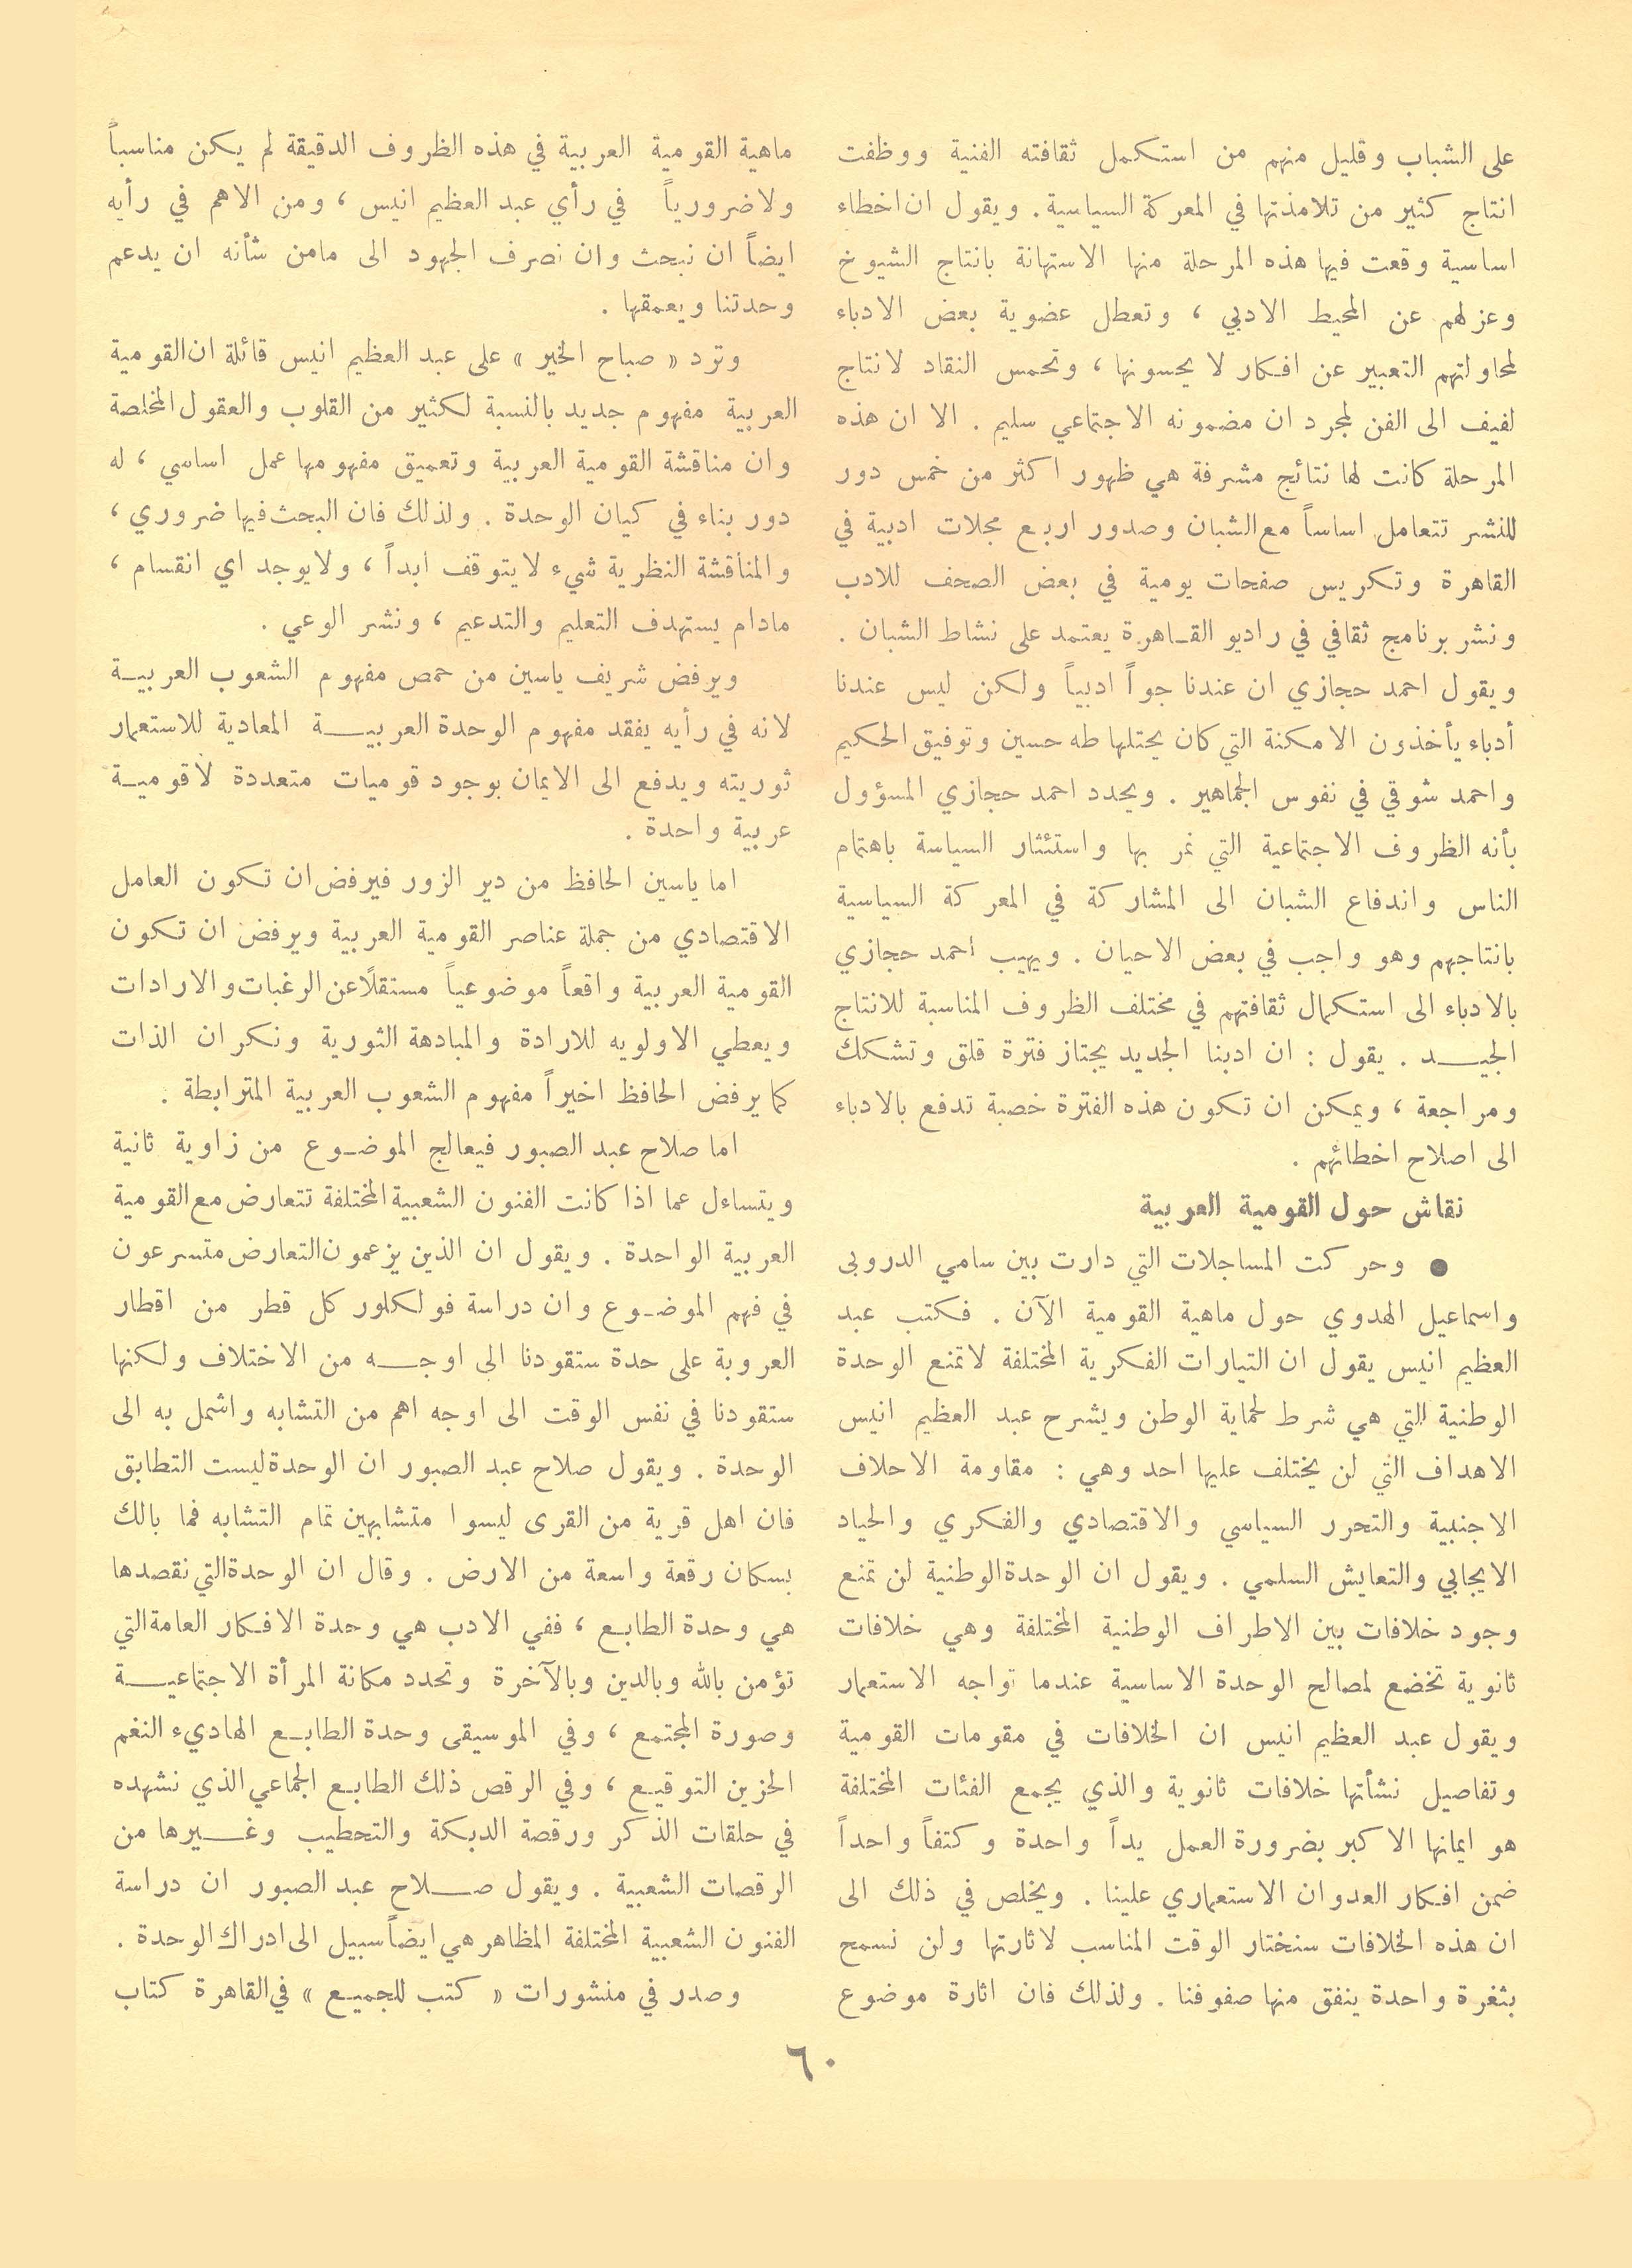 على الشباب وقليل منهم من استكمل ثقافته الفنية ووظفت
انتاج كثير من تلامذتها في المعركة السياسية. ويقول ان اخطاء
اساسية وقعت فيها هذه المرحلة منها الاستهانة بانتاج الشيوخ
وعزلهم عن المحيط الادبي ، وتعطل عضوية بعض الادباء
لمحاولتهم التعبير عن افكار لا يحسونها ، وتحمس النقاد لانتاج
لفيف الى الفن لمجرد ان مضمونه الاجتماعي سليم . الا ان هذه
المرحلة كانت لها نتائج مشرفة هي ظهور اكثر من خمس دور
للنشر تتعامل اساساً مع الشبان وصدور اربع مجلات ادبية في
القاهرة وتكريس صفحات يومية في بعض الصحف للادب
ونشر برنامج ثقافي في راديو القاهرة يعتمد على نشاط الشبان .
ويقول احمد حجازي ان عندنا جواً ادبياً ولكن ليس عندنا
أدباء يأخذون الامكنة التي كان يحتلها طه حسين وتوفيق الحكيم
واحمد شوقي في نفوس الجماهير . ويحدد احمد حجازي المسؤول
بأنه الظروف الاجتماعية التي نمر بها واستئثار السياسة باهتمام
الناس واندفاع الشبان الى المشاركة في المعركة السياسية
بانتاجهم وهو واجب في بعض الاحيان . ويهيب احمد حجازي
بالادباء الى استكمال ثقافتهم في مختلف الظروف المناسبة للانتاج
الجيد . يقول : ان ادبنا الجديد يجتاز فترة قلق وتشكك
ومراجعة ، ويمكن ان تكون هذه الفترة خصبة تدفع بالادباء
الى اصلاح اخطائهم .
نقاش حول القومية العربية
● وحركت المساجلات التي دارت بين سامي الدروبي
واسماعيل المهدوي حول ماهية القومية الآن . فكتب عبد
العظيم انيس يقول ان التيارات الفكرية المختلفة لاتمنع الوحدة
الوطنية التي هي شرط لحماية الوطن ويشرح عبد العظيم انيس
الاهداف التي لن يختلف عليها احد وهي : مقاومة الاحلاف
الاجنبية والتحرر السياسي والاقتصادي والفكري والحياد
الايجابي والتعايش السلمي . ويقول ان الوحدة الوطنية لن تمنع
وجود خلافات بين الاطراف الوطنية المختلفة وهي خلافات
ثانوية تخضع لمصالح الوحدة الاساسية عندما تواجه الاستعمار
ويقول عبد العظيم انيس ان الخلافات في مقومات القومية
وتفاصيل نشأتها خلافات ثانوية والذي يجمع الفئات المختلفة
هو ايمانها الاكبر بضرورة العمل يداً واحدة وكتفاً واحداً
ضمن افكار العدوان الاستعماري علينا . ويخلص في ذلك الى
ان هذه الخلافات سنختار الوقت المناسب لاثارتها ولن نسمح
بثغرة واحدة ينفق منها صفوفنا . ولذلك فان اثارة موضوع
ماهية القومية العربية في هذه الظروف الدقيقة لم يكن مناسباً
ولاضرورياً في رأي عبد العظيم انيس ، ومن الاهم في رأيه
ايضاً ان نبحث وان نصرف الجهود الى مامن شأنه ان يدعم
وحدتنا ويعمقها .
وترد « صباح الخير » على عبد العظيم انيس قائلة ان القومية
العربية مفهوم جديد بالنسبة لكثير من القلوب والعقول المخلصة
وان مناقشة القومية العربية وتعميق مفهومها عمل اساسي ، له
دور بناء في كيان الوحدة . ولذلك فان البحث فيها ضروري ،
والمناقشة النظرية شيء لايتوقف ابداً ، ولايوجد اي انقسام ،
مادام يستهدف التعليم والتدعيم ، ونشر الوعي .
ويرفض شريف ياسين من حمص مفهوم الشعوب العربية
لانه في رأيه يفقد مفهوم الوحدة العربية المعادية للاستعمار
ثوريته ويدفع الى الايمان بوجود قوميات متعددة لاقومية
عربية واحدة .
اما ياسين الحافظ من دير الزور فيرفض ان تكون العامل
الاقتصادي من جملة عناصر القومية العربية ويرفض ان تكون
القومية العربية واقعاً موضوعياً مستقلاً عن الرغبات والارادات
ويعطي الاولويه للارادة والمبادهة الثورية ونكران الذات
كما يرفض الحافظ اخيراً مفهوم الشعوب العربية المترابطة .
اما صلاح عبد الصبور فيعالج الموضوع من زاوية ثانية
ويتساءل عما اذا كانت الفنون الشعبية المختلفة تتعارض مع القومية
العربية الواحدة . ويقول ان الذين يزعمون التعارض متسرعون
في فهم الموضوع وان دراسة فولكلور كل قطر من اقطار
العروبة على حدة ستقودنا الى اوجه من الاختلاف ولكنها
ستقودنا في نفس الوقت الى اوجه اهم من التشابه واشمل به الى
الوحدة . ويقول صلاح عبد الصبور ان الوحدة ليست التطابق
فان اهل قرية من القرى ليسوا متشابهين تمام التشابه فما بالك
بسكان رقعة واسعة من الارض . وقال ان الوحدة التي نقصدها
هي وحدة الطابع ، ففي الادب هي وحدة الافكار العامة التي
تؤمن بالله وبالدين وبالآخرة وتحدد مكانة المرأة الاجتماعية
وصورة المجتمع ، وفي الموسيقى وحدة الطابع الهاديء النغم
الحزين التوقيع ، وفي الرقص ذلك الطابع الجماعي الذي نشهده
في حلقات الذكر ورقصة الدبكة والتحطيب وغيرها من
الرقصات الشعبية . ويقول صلاح عبد الصبور ان دراسة
الفنون الشعبية المختلفة المظاهر هي ايضاً سبيل الى ادراك الوحدة .
وصدر في منشورات « كتب للجميع » في القاهرة كتاب
٦٠